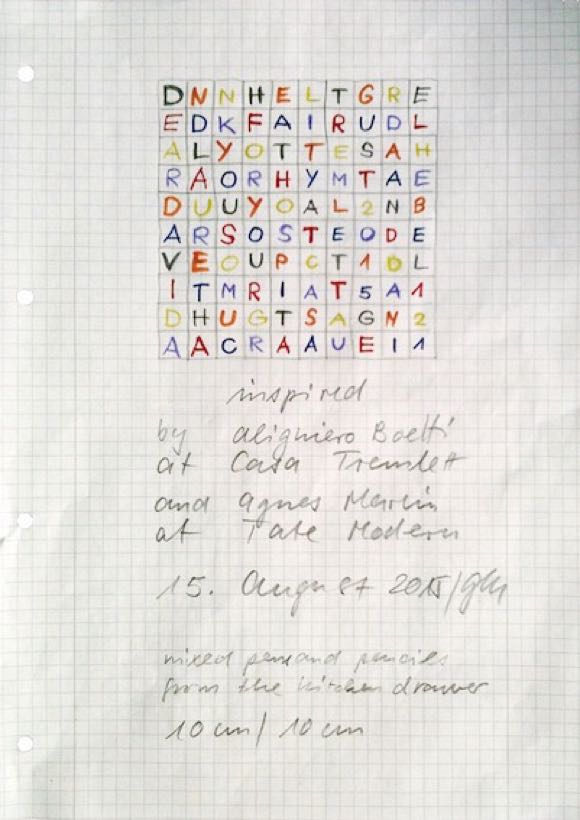 D N N H E L T G R E
E D K F A I R U D L
A L Y O T T E S A H
R A O R H Y M T A E
D U U Y O A L 2 N B
A R S O S T E O D E
V E O U P C T 1 O L
I T M R I A T 5 A 1
D H U G T S A G N 2
A A C R A A U E I 1
inspired
by Alighiero Boetti
at Casa Tremlett
and Agnes Martin
at Tate Modern
15. August 2015/
mixed pens and pencils
from the kitchen drawer
10 cm / 10 cm